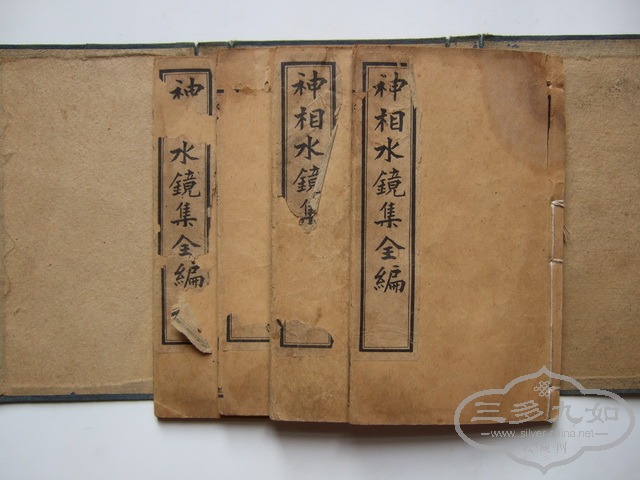 神相水鏡集全編
神相水鏡集
神
水鏡集全編
三多九如
www.silverchina.net